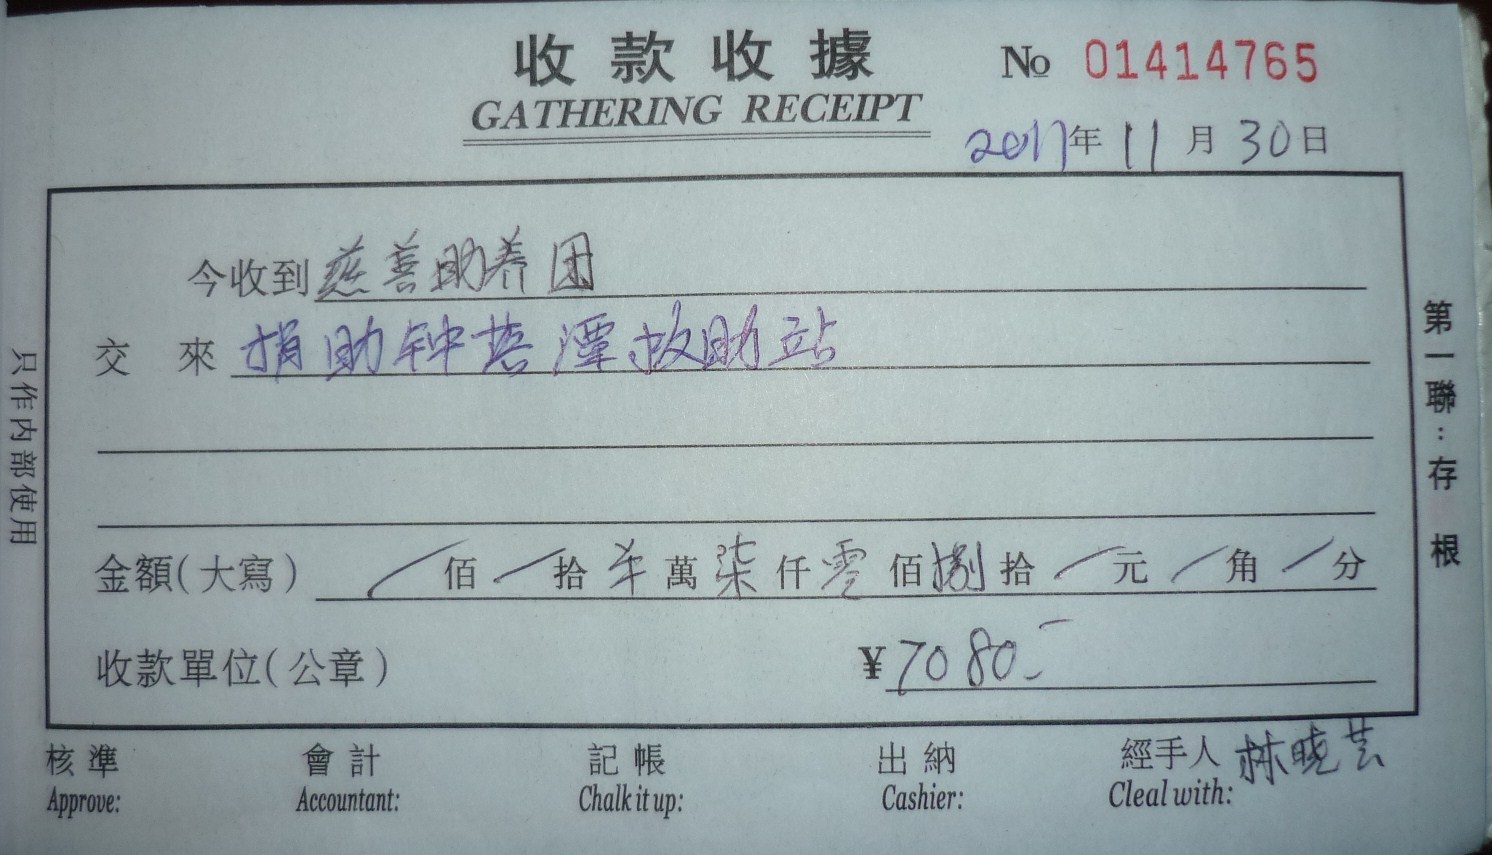 收款收據 No 01414765
GATHERING RECEIPT
2011年11月30日
今收到慈善助养团
交來捐助钟落潭救助站
金額(大寫) / 佰 / 拾 半 萬 柒 仟 零 佰 捌 拾 / 元 / 角 / 分
收款單位(公章) ¥7080.-
核準 會計 記帳 出納 經手人 林晓芸
Approve: Accountant: Chalk it up: Cashier: Cleal with:
只作内部使用
第一聯:存根